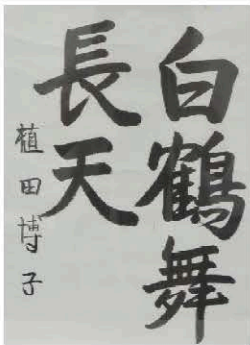 白鶴舞
長天
植田博子